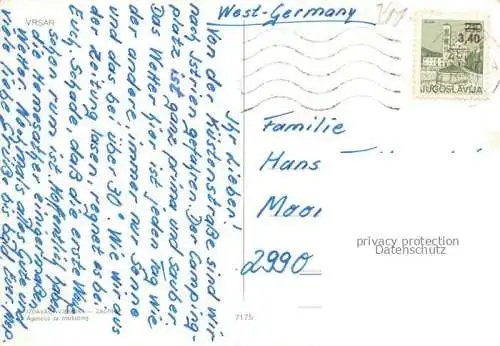 VRSAR
West-Germany
3,40
JUGOSLAVIJA
Ihr Lieben!
Von der Küstenstraße sind wir
nach Istrien gefahren. Der Camping-
platz ist ganz prima und sauber.
Das Wetter hier ist jeden Tag wie
der andere, immer nur Sonne
und das bei über 30°. Wie wir aus
der Zeitung lasen, regnet es bei
Euch. Schade, daß die erste Woche
schon rum ist. Hoffentlich haben
die Hemesather einigermaßen
Wetter. Nochmals alles Gute und
viele liebe Grüße bis bald Euer
Familie
Hans
Maai
2990
privacy protection
www.oldthing.de
ZAGREB
Agencija za marketing
7175